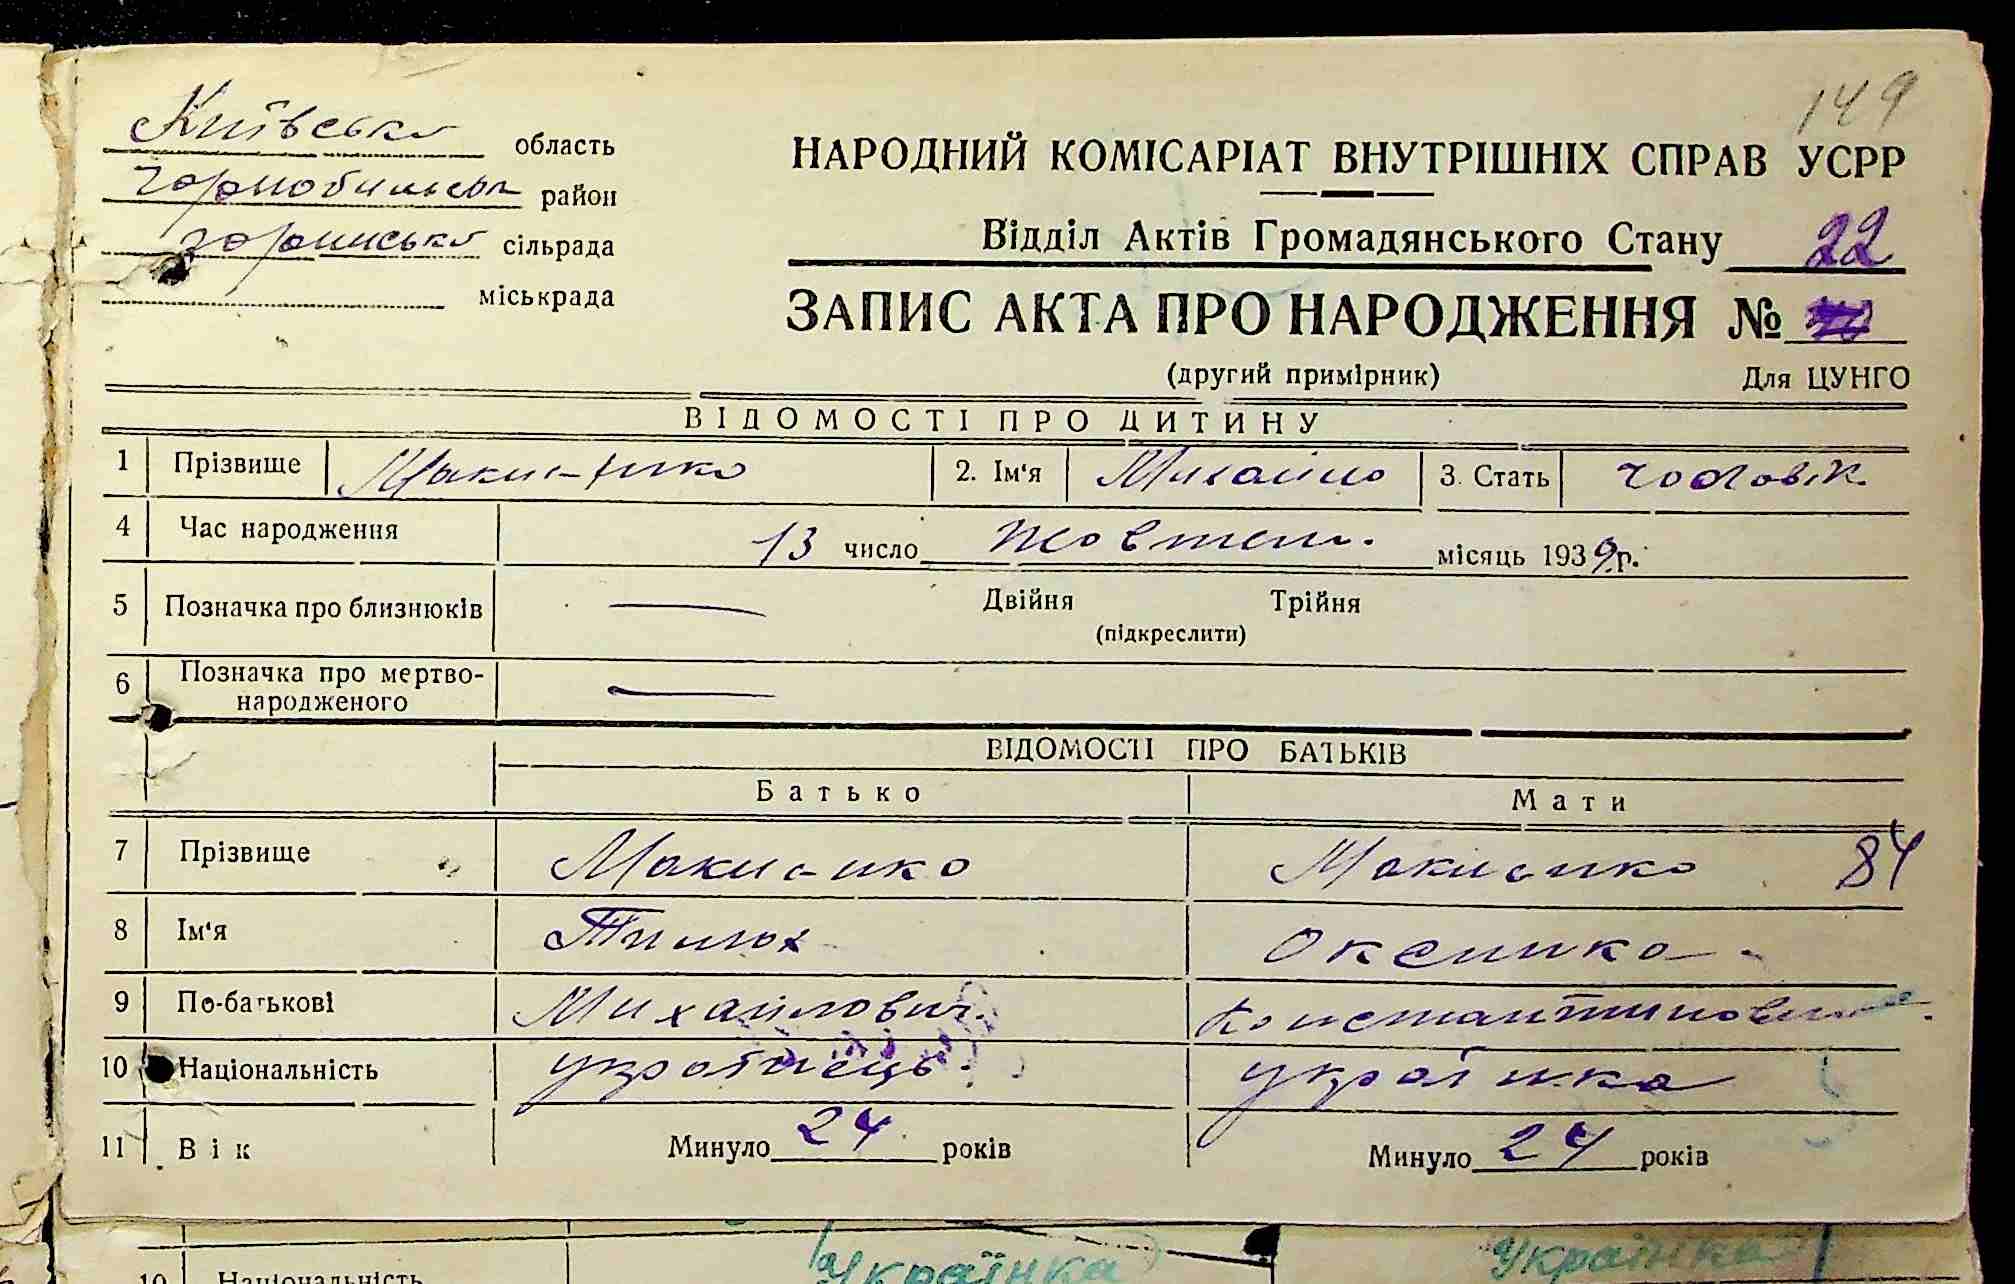 149
Київська область
Чорнобильськ район
зоринська сільрада
міськрада
НАРОДНИЙ КОМІСАРІАТ ВНУТРІШНІХ СПРАВ УСРР
Відділ Актів Громадянського Стану 22
ЗАПИС АКТА ПРО НАРОДЖЕННЯ №
(другий примірник) Для ЦУНГО
ВІДОМОСТІ ПРО ДИТИНУ
1 Прізвище 2. Ім'я Михайло 3. Стать чоловік.
4 Час народження 13 число жовтень. місяць 1939 р.
5 Позначка про близнюків — Двійня Трійня
(підкреслити)
6 Позначка про мертво-
народженого —
ВІДОМОСТІ ПРО БАТЬКІВ
Батько Мати
7 Прізвище 84
8 Ім'я
9 По-батькові Михайлович. Константиновна
10 Національність українець. українка
11 Вік Минуло 24 років Минуло 24 років
Українка Українка
10 Національність